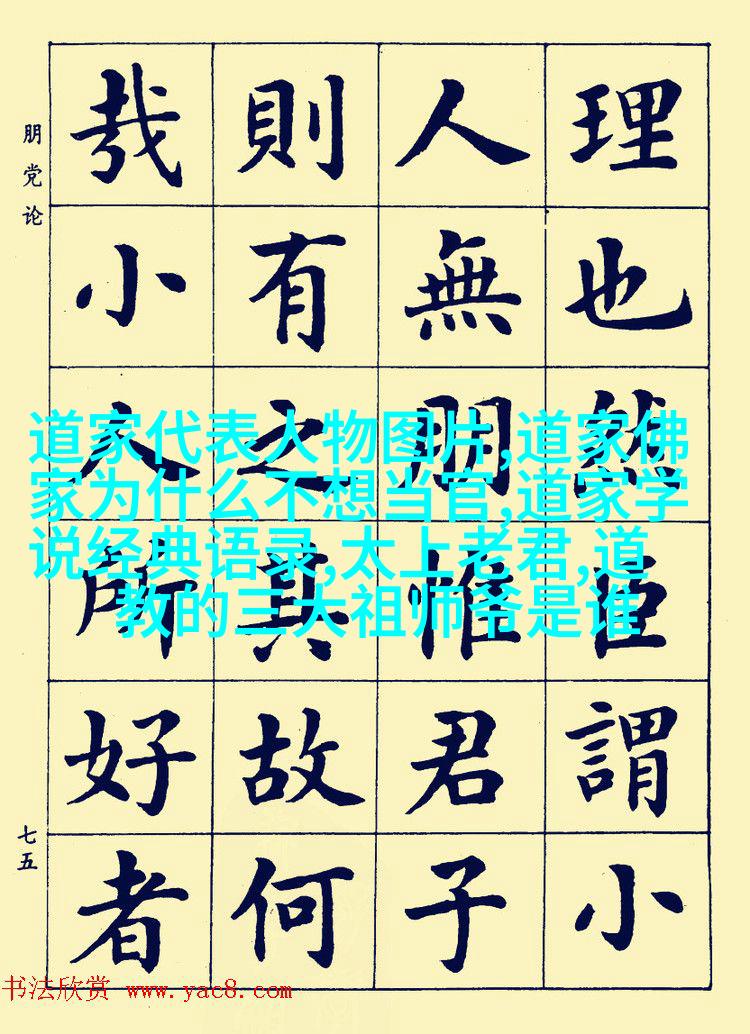 理也然臣謂小
人無朋惟君子
則有之其故何
哉小人所好者
朋党论
七五
道家代表人物图片,道家佛
家为什么不想当官,道家学
说经典语录,太上老君,道
教的三大祖师爷是谁
书法欣赏 www.yac8.com